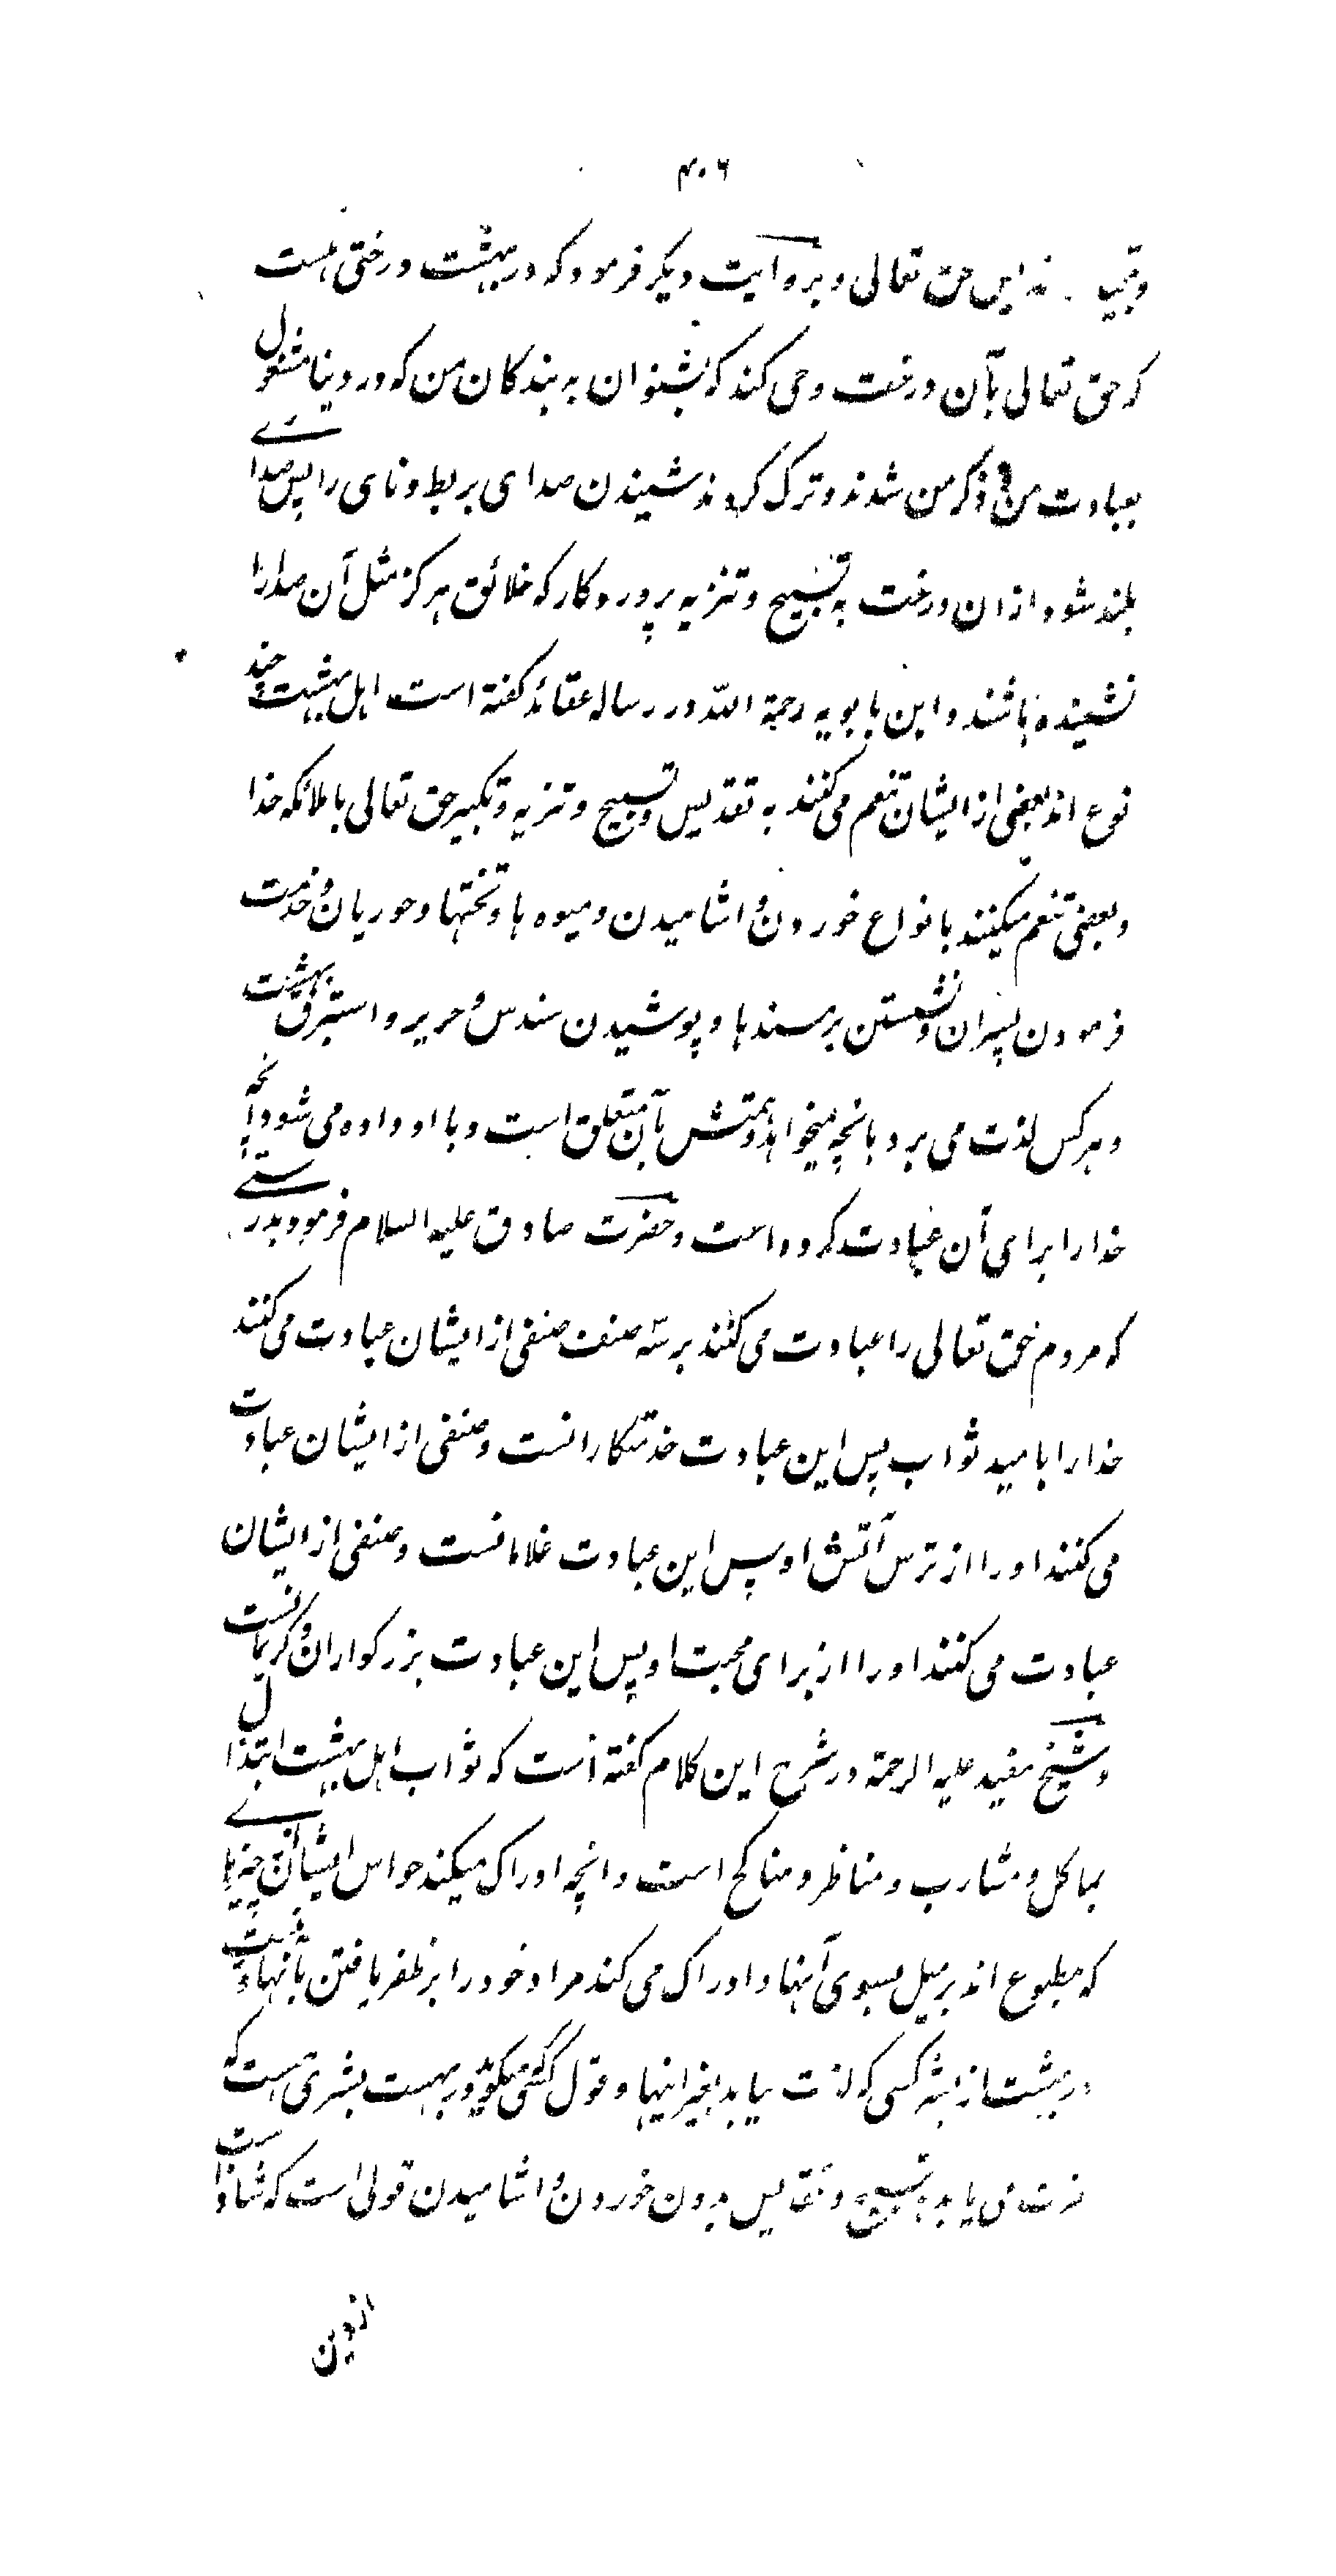 ۴۰۶
تعالی و بروایت دیکر فرمود که در بهشت درختی هست
که حق تعالی بآن درخت وحی کند که بشنوان به بندکان من که در دنیا مشغول
بعبادت من و ذکر من شدند و ترک کردند شنیدن صدای بربط و نای را پس صدائے
بلند شود ازان درخت به تسبیح و تنزیه پروردکار که خلائق هرکز مثل آن صدا را
نشنیده باشند و ابن بابویه رحمة الله در رساله عقائد کفته است اهل بهشت چند
نوع اند بعضی از ایشان تنعم می کنند به تقدیس و تسبیح و تنزیه و تکبیر حق تعالی با ملائکه خدا
و بعضی تنعم میکنند بانواع خوردن و اشامیدن و میوه ها و تختها و حوریان و خدمت
فرمودن پسران و نشستن بر مسندها و پوشیدن سندس و حریر و استبرق بهشت
و هر کس لذت می برد بانچه میخواهد و همتش بآن متعلق است و با او داده می شود آنچه
خدا را برای آن عبادت کرده است و حضرت صادق علیه السلام فرمود بدرستے
که مردم حق تعالی را عبادت می کنند بر سه صنف صنفی از ایشان عبادت می کنند
خدا را بامید ثواب پس این عبادت خدمتکارانست و صنفی از ایشان عبادت
می کنند او را از ترس آتش او پس این عبادت غلامانست و صنفی از ایشان
عبادت می کنند او را از برای محبت او پس این عبادت بزرکواران و کریمانست
و شیخ مفید علیه الرحمة در شرح این کلام کفته است که ثواب اهل بهشت التذاذ
بماکل و مشارب و مناظر و مناکح است و انچه ادراک میکند حواس ایشان از چیزهائے
که مطبوع اند بر میل بسوی آنها و ادراک می کند مراد خود را بظفر یافتن بآنها و نیست
در بهشت از بشر کسی که لذت بیابد بغیر اینها و قول کسی که میکوید در بهشت بشری هست که
لذت می یابد به تسبیح و تقدیس بدون خوردن و اشامیدن قولی است که شاذ است
ازدین